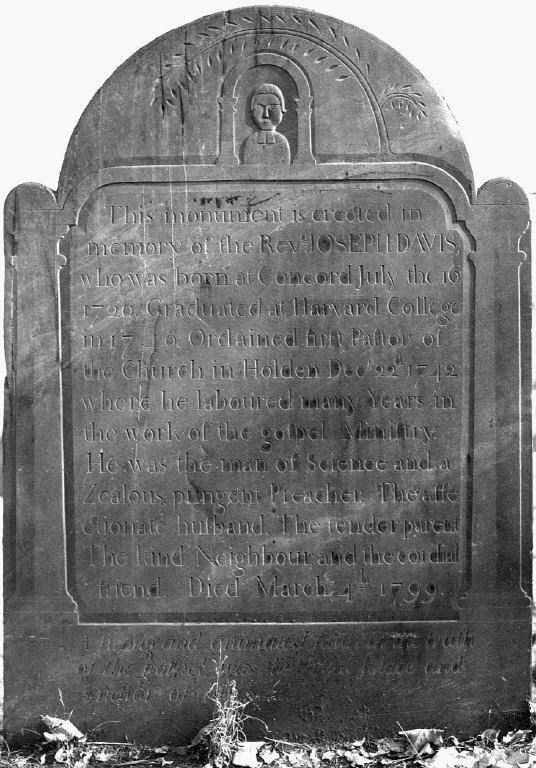 This monument is erected in
memory of the Revᵈ. JOSEPH DAVIS,
who was born at Concord July the 16
1720. Graduated at Harvard College
in 1740. Ordained firſt Paſtor of
the Church in Holden Decʳ 22ᵈ 1742
where he laboured many Years in
the work of the goſpel Miniſtry.
He was the man of Science and a
Zealous, pungent Preacher. The affe
ctionate huſband, The tender parent
The kind Neighbour and the cordial
friend. Died March 4ᵗʰ 1799.
A ſtrong and animated faith in the truth
of the goſpel was the ſolace and
anchor of